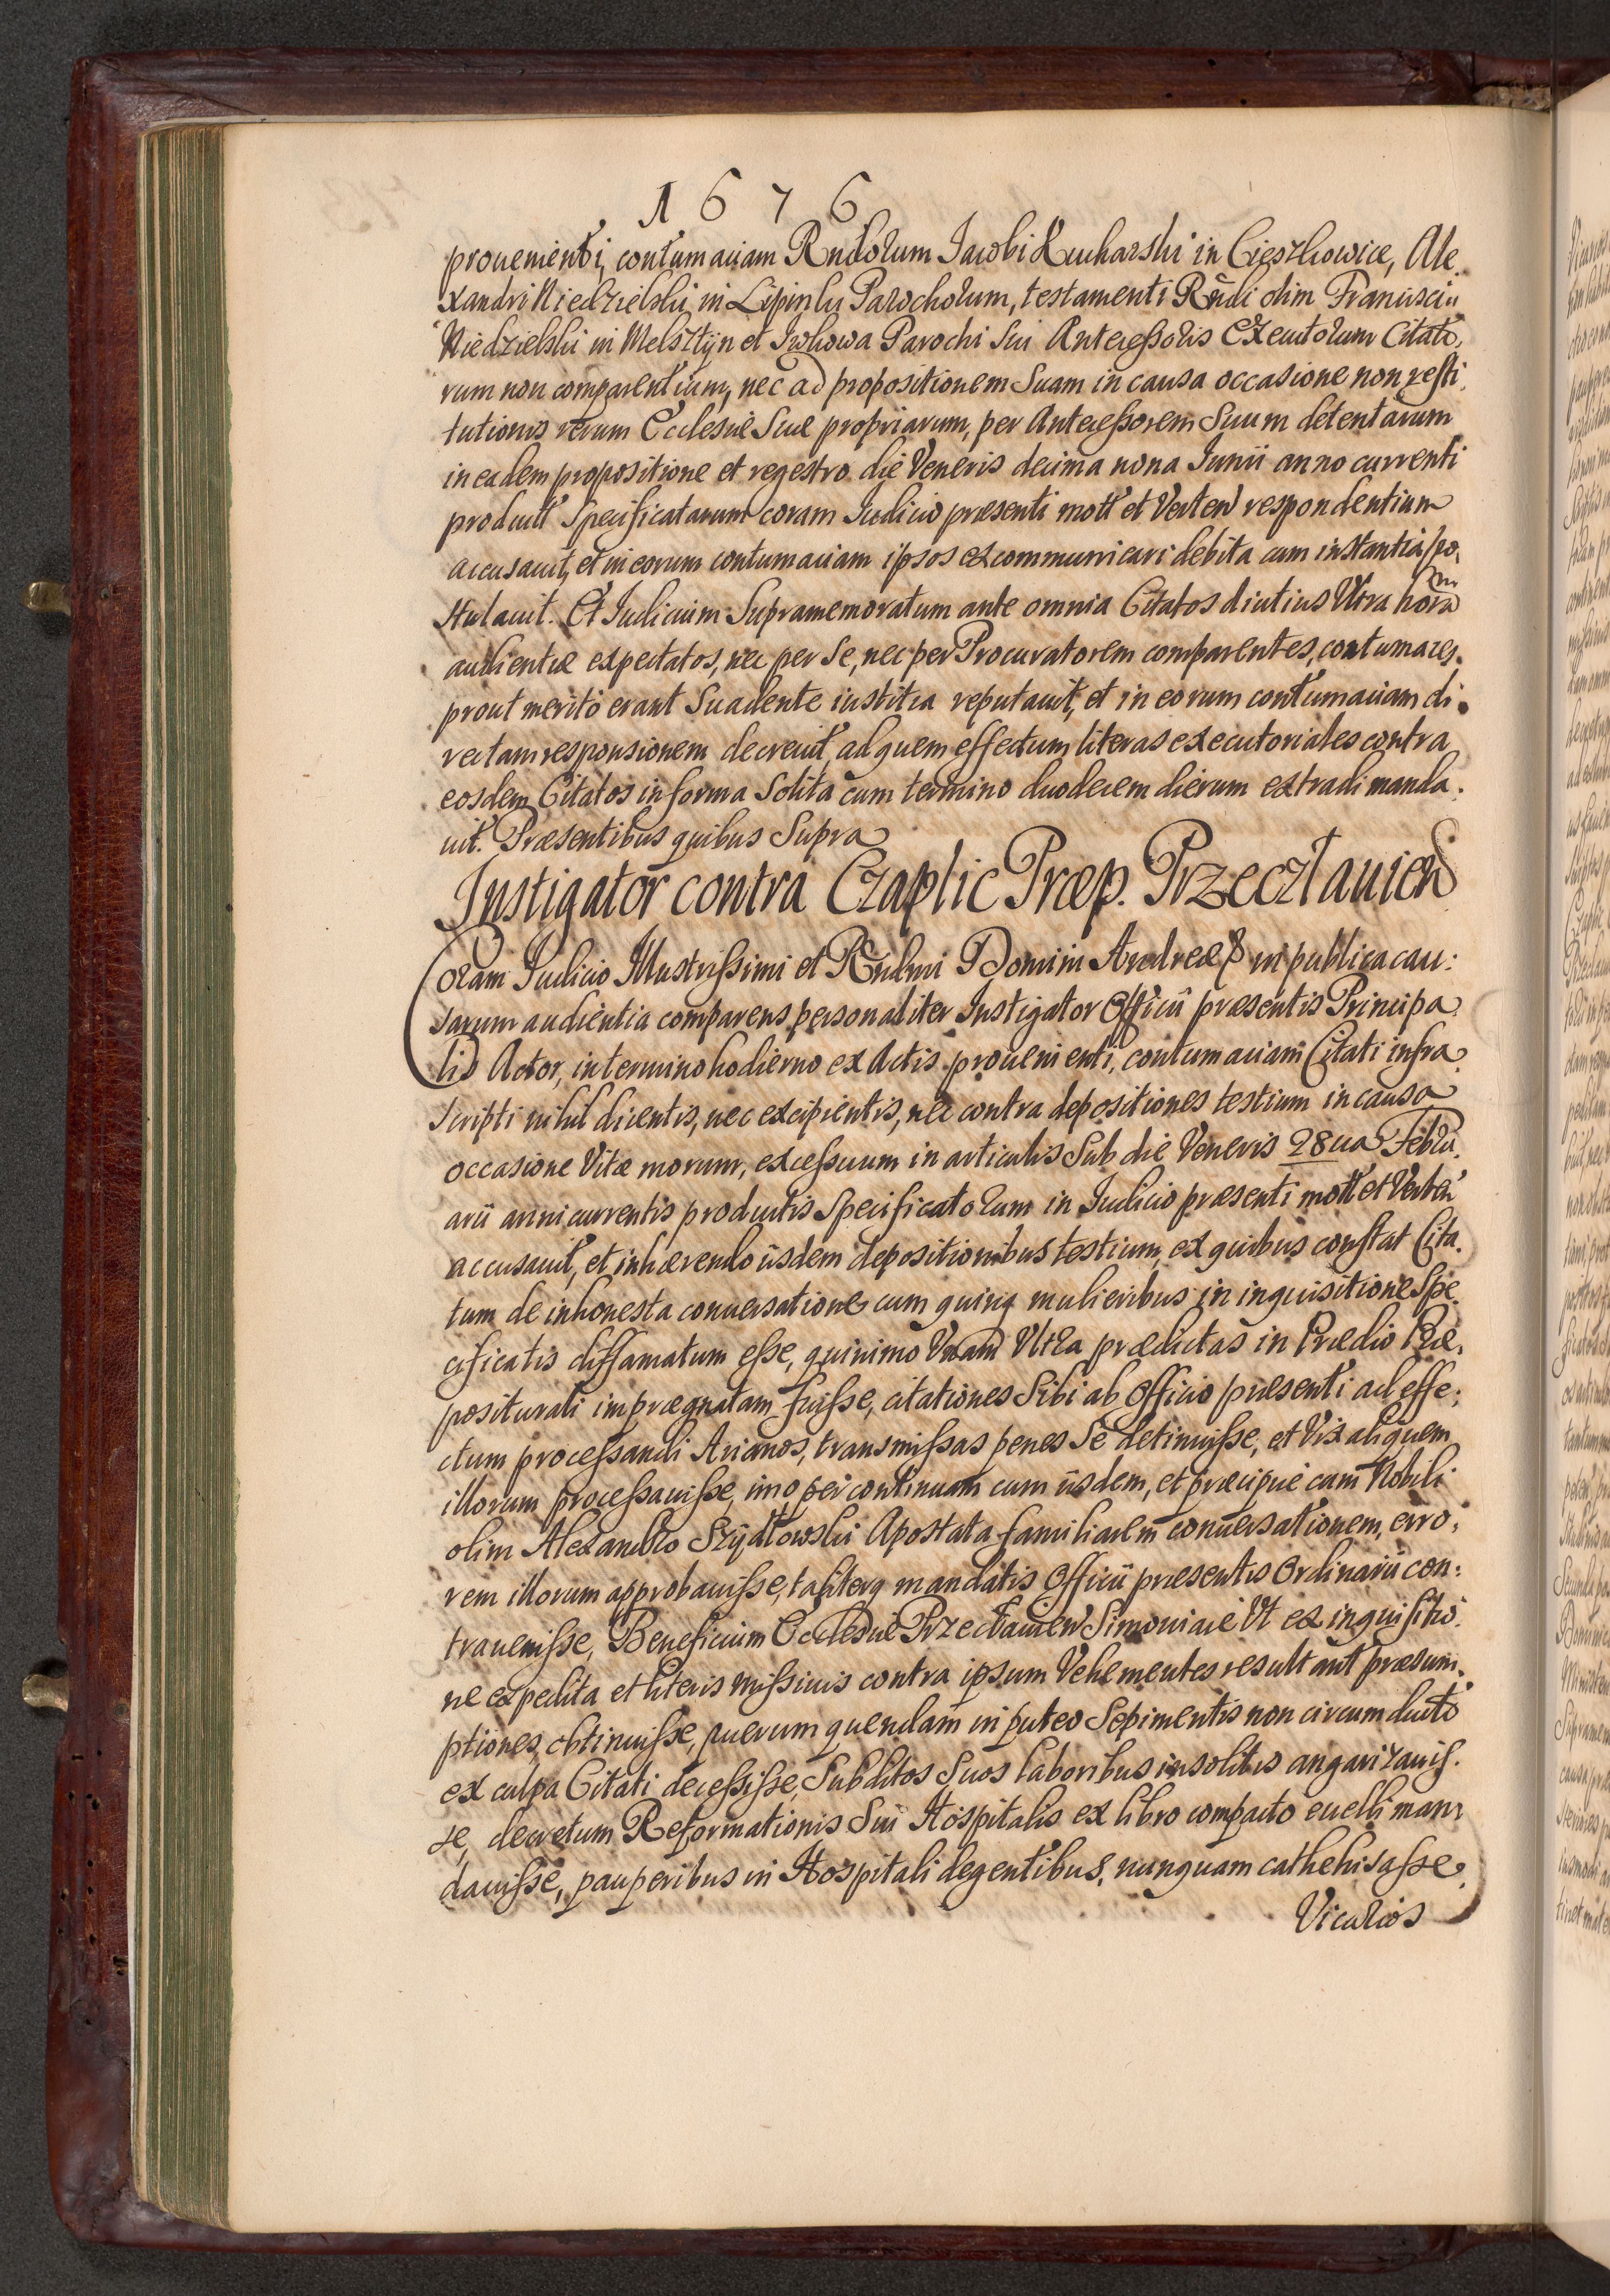 1676
prouenienti, contumaciam Rndorum Jacobi Kucharski in Cieszkowice, Ale,
xandri Niedzielski in Lipinki Parochorum, testamenti Rndi olim Francisci
Niedzielski in Melsztyn et Iwkowa Parochi Sui Antecessoris Executorum Citato,
rum non comparentium, nec ad propositionem Suam in causa occasione non resti,
tutionis rerum Ecclesiæ Suæ propriarum, per Antecessorem Suum detentarum
in eadem propositione et regestro die Veneris decima nona Junii anno currenti
product Specificatarum coram Judicio præsenti mott et Verten respondentium
accusauit, et in eorum contumaciam ipsos excommunicari debita cum instantia po,
stulauit. Et Judicium Supramemoratum ante omnia Citatos diutius Vltra horam
audientiæ expectatos, nec per Se, nec per Procuratorem comparentes, contumaces,
prout merito erant Suadente iustitia reputauit, et in eorum contumaciam di,
rectam responsionem decreuit, ad quem effectum literas executoriales contra
eosdem Citatos in forma Solita cum termino duodecem dierum extradi manda,
uit. Præsentibus quibus Supra
Instigator contra Czaplic Præp. Przecztauien
Coram Judicio Illustrissimi et Rndmi Domini Andreæ & in publica cau:
sarum audientia comparens personaliter Instigator Officii præsentis Principa
lis Actor, in termino hodierno ex Actis prouenienti, contumaciam Citati infra
scripti nihil dicentis, nec excipientis, nec contra depositiones testium in causa
occasione Vitæ morum, excessuum in articulis Sub die Veneris 28ua Febru,
arii anni currentis productis Specificatorum in Judicio præsenti mott et Verten
accusauit, et inhærendo iisdem depositionibus testium, ex quibus constat Cita,
tum de inhonesta conuersatione cum quinq mulieribus in inquisitione Spe,
cificatis diffamatum esse, quinimo Vnam Vltra prædictas in Prædio Præ,
positurali imprægnatam fuisse, citationes Sibi ab Officio præsenti ad effe:
ctum processandi Arianos, transmissas penes Se detinuisse, et Vix aliquem
illorum processauisse, imo per continuam cum iisdem, et præcipue cum Nobili
olim Alexandro Szydłowski Apostata familiarem conuersationem, erro,
rem illorum approbauisse, taliterq mandatis Officii præsentis Ordinarii con:
trauenisse, Beneficium Ecclesiæ Przecztauien Simoniace Vt ex inquisitio
ne expedita et literis missiuis contra ipsum Vehementes resultant præsum,
ptiones, obtinuisse, puerum quendam in puteo Sepimentis non circumducto
ex culpa Citati decessisse, Subditos Suos laboribus insolitis angarizauis,
se, decretum Reformationis Sui Hospitalis ex libro compacto euelli man,
dauisse, pauperibus in Hospitali degentibus, nunquam cathehisasse,
Vicarios